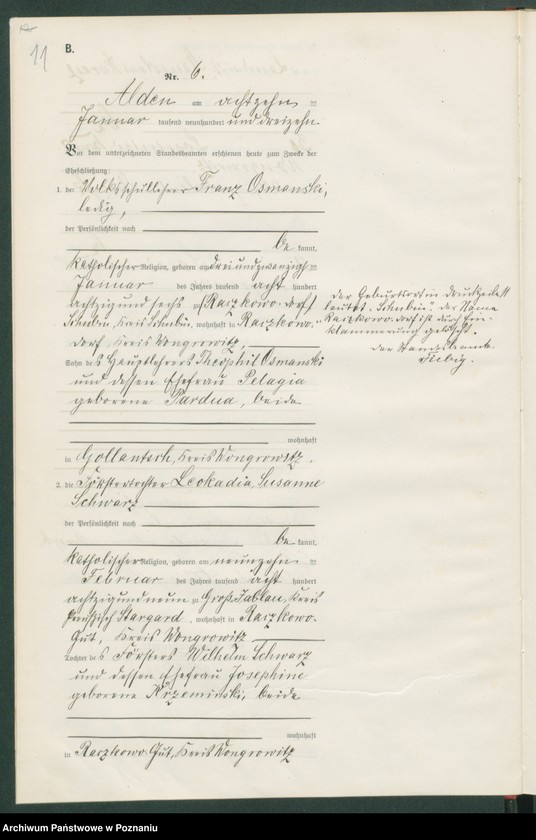 11
B.
Nr. 6.
Alden am achtzehn ten
Januar tausend neunhundert und dreizehn.
Vor dem unterzeichneten Standesbeamten erschienen heute zum Zwecke der
Eheschließung:
1. der Volksschullehrer Franz Osmanski,
ledig,
der Persönlichkeit nach
be kannt,
katholischer Religion, geboren am dreiundzwanzigsten
Januar des Jahres tausend acht hundert
achtzig und sechs zu Raczkowo-Dorf
Schubin, Kreis Schubin, wohnhaft in Raczkowo-
Dorf, Kreis Wongrowitz,
Sohn des Hauptlehrers Theophil Osmanski
und dessen Ehefrau Pelagia
geborene Pardua, beide
wohnhaft
in Gollantsch, Kreis Wongrowitz.
Der Geburtsort in Druckzeile 11
lautet "Schubin", der Name
Raczkowo-Dorf ist durch Ein-
klammerung gelöscht.
Der Standesbeamte.
2. die Förstertochter Leokadia, Susanne
Schwarz
der Persönlichkeit nach
be kannt,
katholischer Religion, geboren am neunzehn ten
Februar des Jahres tausend acht hundert
achtzig und neun zu Groß Jablau, Kreis
Preußisch Stargard, wohnhaft in Raczkowo-
Gut, Kreis Wongrowitz
Tochter des Försters Wilhelm Schwarz
und dessen Ehefrau Josephine
geborene Krzeminski, beide
wohnhaft
in Raczkowo-Gut, Kreis Wongrowitz
Archiwum Państwowe w Poznaniu